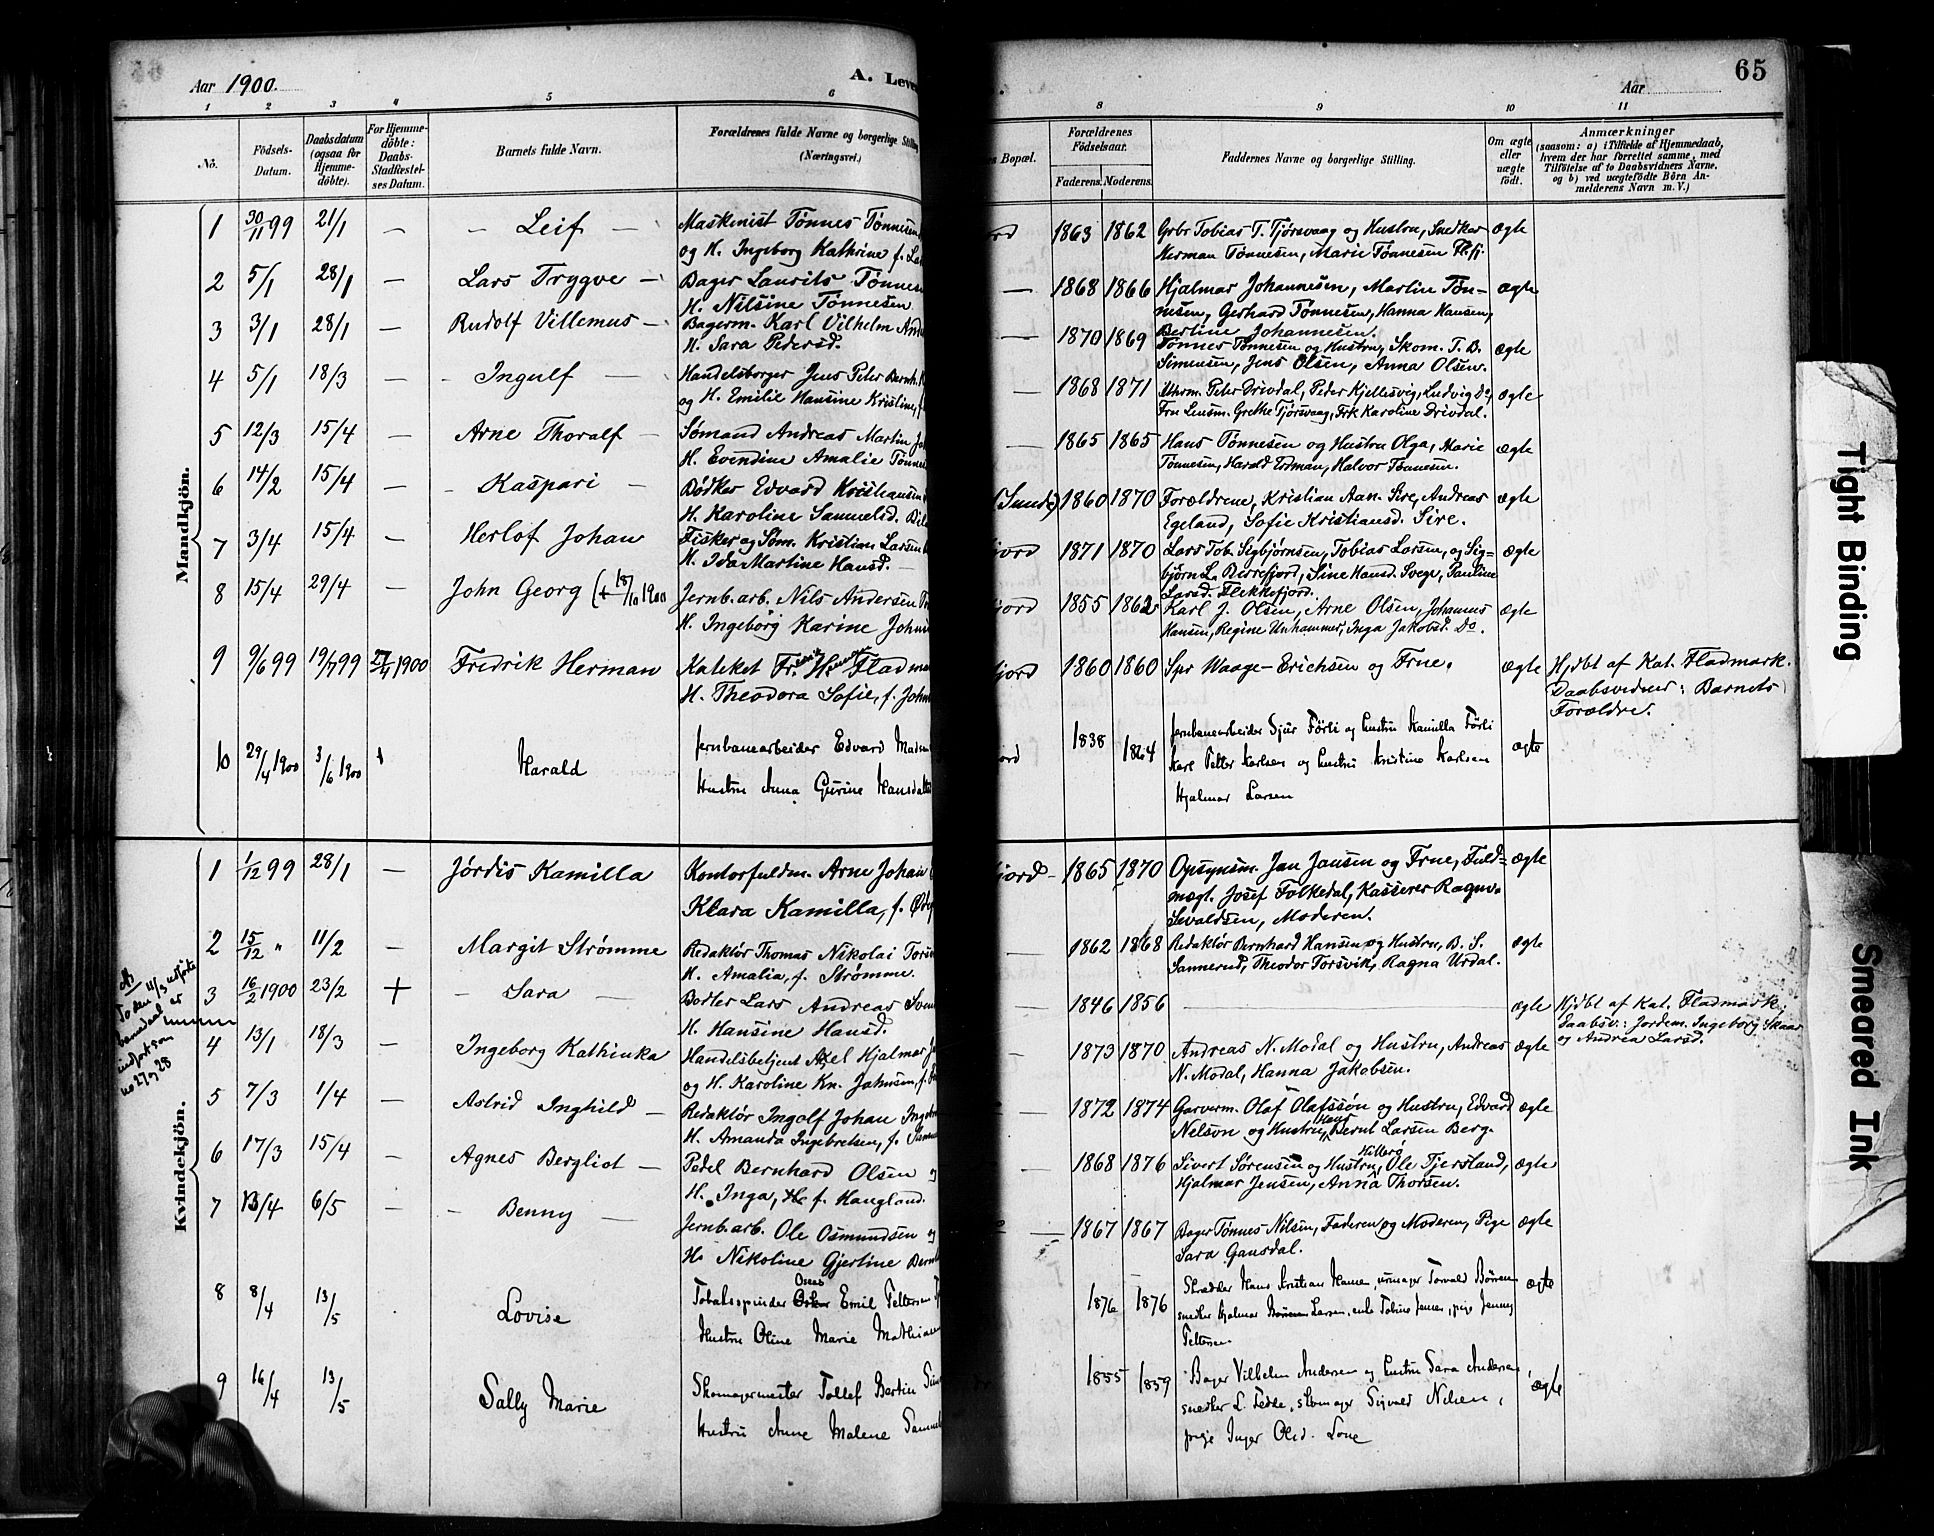 Aar 1900.
A. Leve
65
Aar
1 2 3 4 5 6 8 9 10 11
No.
Födsels-Datum.
Daabsdatum (ogsaa for Hjemme-döbte).
For Hjemme-döbte: Daabs-Stadfæstel-ses Datum.
Barnets fulde Navn.
Forældrenes fulde Navne og borgerlige Stilling (Næringsvei.)
s Bopæl.
Forældrenes Födselsaar.
Faderens. Moderens.
Faddernes Navne og borgerlige Stilling.
Om ægte eller uægte födt.
Anmærkninger
(saasom: a) i Tilfælde af Hjemmedaab,
hvem der har forrettet samme, med
Tilföielse af to Daabsvidners Navne,
og b) ved uægtefödte Börn An-
melderens Navn m. V.)
Mandkjön.
1 30/11 99 21/1 — Leif — Maskinist Tønnes Tønnesen
og H. Ingeborg Kathrine f. La
rd 1863 1862 Grbr Tobias T. Tjørsvaag og Hustru, Snedker ægte
Herman Tønnesen, Marie Tønnesen
2 5/1 28/1 — Lars Trygve — Bager Laurits Tønnes
H. Nilsine Tønnesen
— 1868 1866 Hjalmar Johannesen, Martin Tøn- ægte
nesen, Gerhard Tønnesen, Hanna Hansen,
Bertine Johannesen.
3 3/1 28/1 — Rudolf Villemus — Bagerm. Karl Vilhelm Ande
H. Sara Pedersd.
— 1870 1869 Tønnes Tønnesen og Hustru, Skom. T. B. ægte
Simensen, Jens Olsen, Anna Olsen.
4 5/1 18/3 — Ingulf — Handelsborger Jens Peter Bernh.
og H. Emilie Hansine Kristine, f
— 1868 1871 Peter Drivdal, Peder Kjellesvig, Ludvig Do, ægte
Fru Lensm. Grethe Tjørsvaag, Frk Karoline Drivdal.
5 12/3 15/4 — Arne Thoralf — Sømand Andreas Martin Jo
H. Evendine Amalie Tønne
— 1865 1865 Hans Tønnesen og Hustru Olga, Marie ægte
Tønnesen, Harald Erdman, Halvor Tønnesen.
6 14/2 15/4 — Kaspari — Bødker Edvard Kristiansen
H. Karoline Sammelsd.
(Sunde) 1860 1870 Forældrene, Kristian Aan. Sire, Andreas ægte
Egeland, Sofie Kristiansd. Sire.
7 3/4 15/4 — Herlof Johan Fisker og Søm. Kristian Larsen
H. Ida Martine Hansd. —
jord 1871 1870 Lars Tob. Sigbjørnsen, Tobias Larsen, og Sig- ægte
bjørn L. Birrefjord, Sine Hansd. Svege, Pauline
Larsd. Flekkefjord.
8 15/4 29/4 — John Georg (+ 18/10 1900 Jernb. arb. Nils Andersen
H. Ingeborg Karine John
jord 1855 1862 Karl J. Olsen, Arne Olsen, Johannes ægte
Hansen, Regine Unhammer, Inga Jakobsd. Do.
9 9/6 99 19/7 99 27/4 1900 Fredrik Herman Kateket Fr. H. Fladma
H. Theodora Sofie, f. John
jord 1860 1860 Spr Waage-Erichsen og Frue. ægte Hjdbt af Kat. Fladmark.
Daabsvidner: Barnets
Forældre.
10 29/4 1900 3/6 1900 Harald Jernbanearbeider Edvard Madsen
Hustru Anna Gurine Hansdatter
ord 1838 1864 Jernbanearbeider Sjur Førli og Hustru Kamilla Førli ægte
Karl Petter Karlsen og Hustru Kristine Karlsen
Hjalmar Larsen
Kvindekjön.
1 1/12 99 28/1 — Jørdis Kamilla Kontorfuldm. Arne Johan
Klara Kamilla, f.
jord 1865 1870 Opsynsm. Jan Jansen og Frue, Fuld= ægte
mægt. Josef Folkedal, Kasserer Ragnv.
Sevaldsen, Moderen.
2 15/12 " 11/2 — Margit Strømme Redaktør Thomas Nikolai Torsv
H. Amalia, f. Strømme.
1862 1868 Redaktør Bernhard Hansen og Hustru, B. S. ægte
Sannerud, Theodor Torsvik, Ragna Urdal.
3 16/2 1900 23/2 + — Sara — Bødker Lars Andreas Sven
H. Hansine Hansd.
— 1846 1856 ægte Hjdbt af Kat. Fladmark,
Daabsv.: Jordem. Ingeborg Skaar
og Andrea Larsd.
To den 11/3 udførte
barnedaab er
indført som
no 27 og 28
4 13/1 18/3 — Ingeborg Kathinka Handelsbetjent Axel Hjalmar
og H. Karoline Kn. Jahnsen, f.
— 1873 1870 Andreas N. Modal og Hustru, Andreas ægte
N. Modal, Hanna Jakobsen.
5 7/3 1/4 — Astrid Inghild — Redaktør Ingolf Johan Ingebr
H. Amanda Ingebretsen, f.
— 1872 1874 Garverm. Olaf Olafssøn og Hustru, Edvard ægte
Nelson og Hustru, Hans Bernt Larsen Berg.
6 17/3 15/4 — Agnes Bergliot — Pedel Bernhard Olsen og
H. Inga, f. Haugland.
— 1868 1876 Sivert Sørensen og Hustru, Ole Tjersland, ægte
Hjalmar Jensen, Anna Thorsen.
7 13/4 6/5 — Benny — Jernb. arb. Ole Osmundsen og
H. Nikoline Gjertine Bernt
— 1867 1867 Bager Tønnes Nilsen, Faderen og Moderen, Pige ægte
Sara Gansdal.
8 8/4 13/5 Lovise Tobaksspinder Oseas Emil Pettersen
Hustru Oline Marie Mathias
1876 1876 Skrædder Hans Kristian Hansen, urmager Torvald Børresen ægte
snedker Hjalmar Larsen, enke Tobine Jensen, pige Jenny
Pettersen
9 16/4 13/5 Sally Marie Skomagermester Tollef Bertin
Hustru Anne Malene Samuel
1855 1859 Bager Vilhelm Andersen og Hustru Sara Andersen ægte
snedker L. Fedde, skomager Sigvald Nilsen,
pige Inger Olsd. Lone
Tight Binding
Smeared Ink